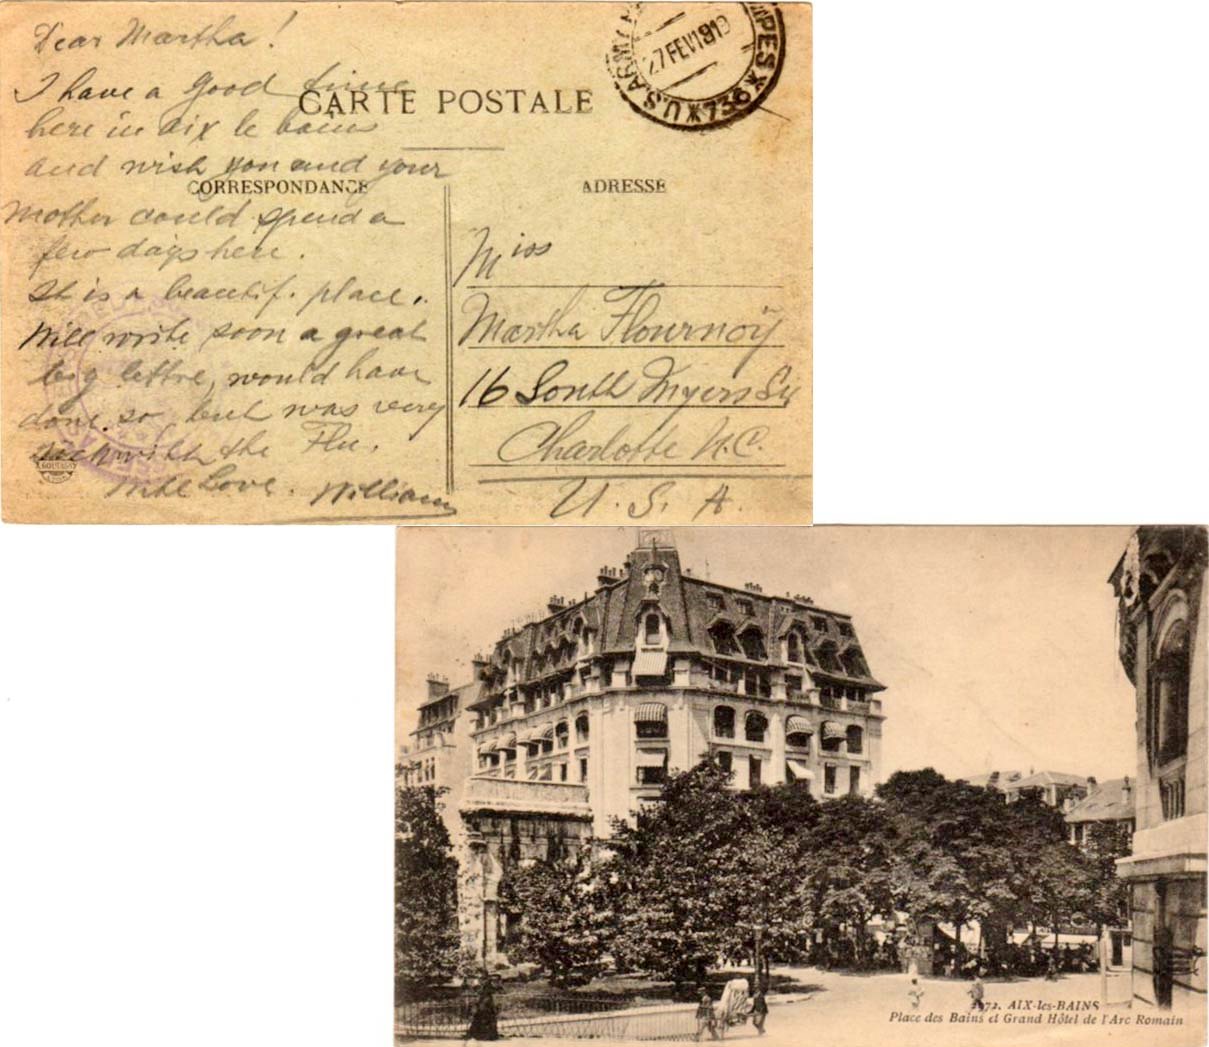 Dear Martha!
I have a good time
CARTE POSTALE
here in aix le bains
and wish you and your
CORRESPONDANCE
ADRESSE
mother could spend a
few days here.
It is a beautif. place.
Will write soon a great
big lettre, would have
done so but was very
sick with the Flu.
With Love. William
U.S. ARMY
27 FEV 1919
*U.S.* 736 *
Miss
Martha Flournoÿ
16 South Myers St
Charlotte N.C.
U. S. A.
AIX-les-BAINS
Place des Bains et Grand Hôtel de l'Arc Romain